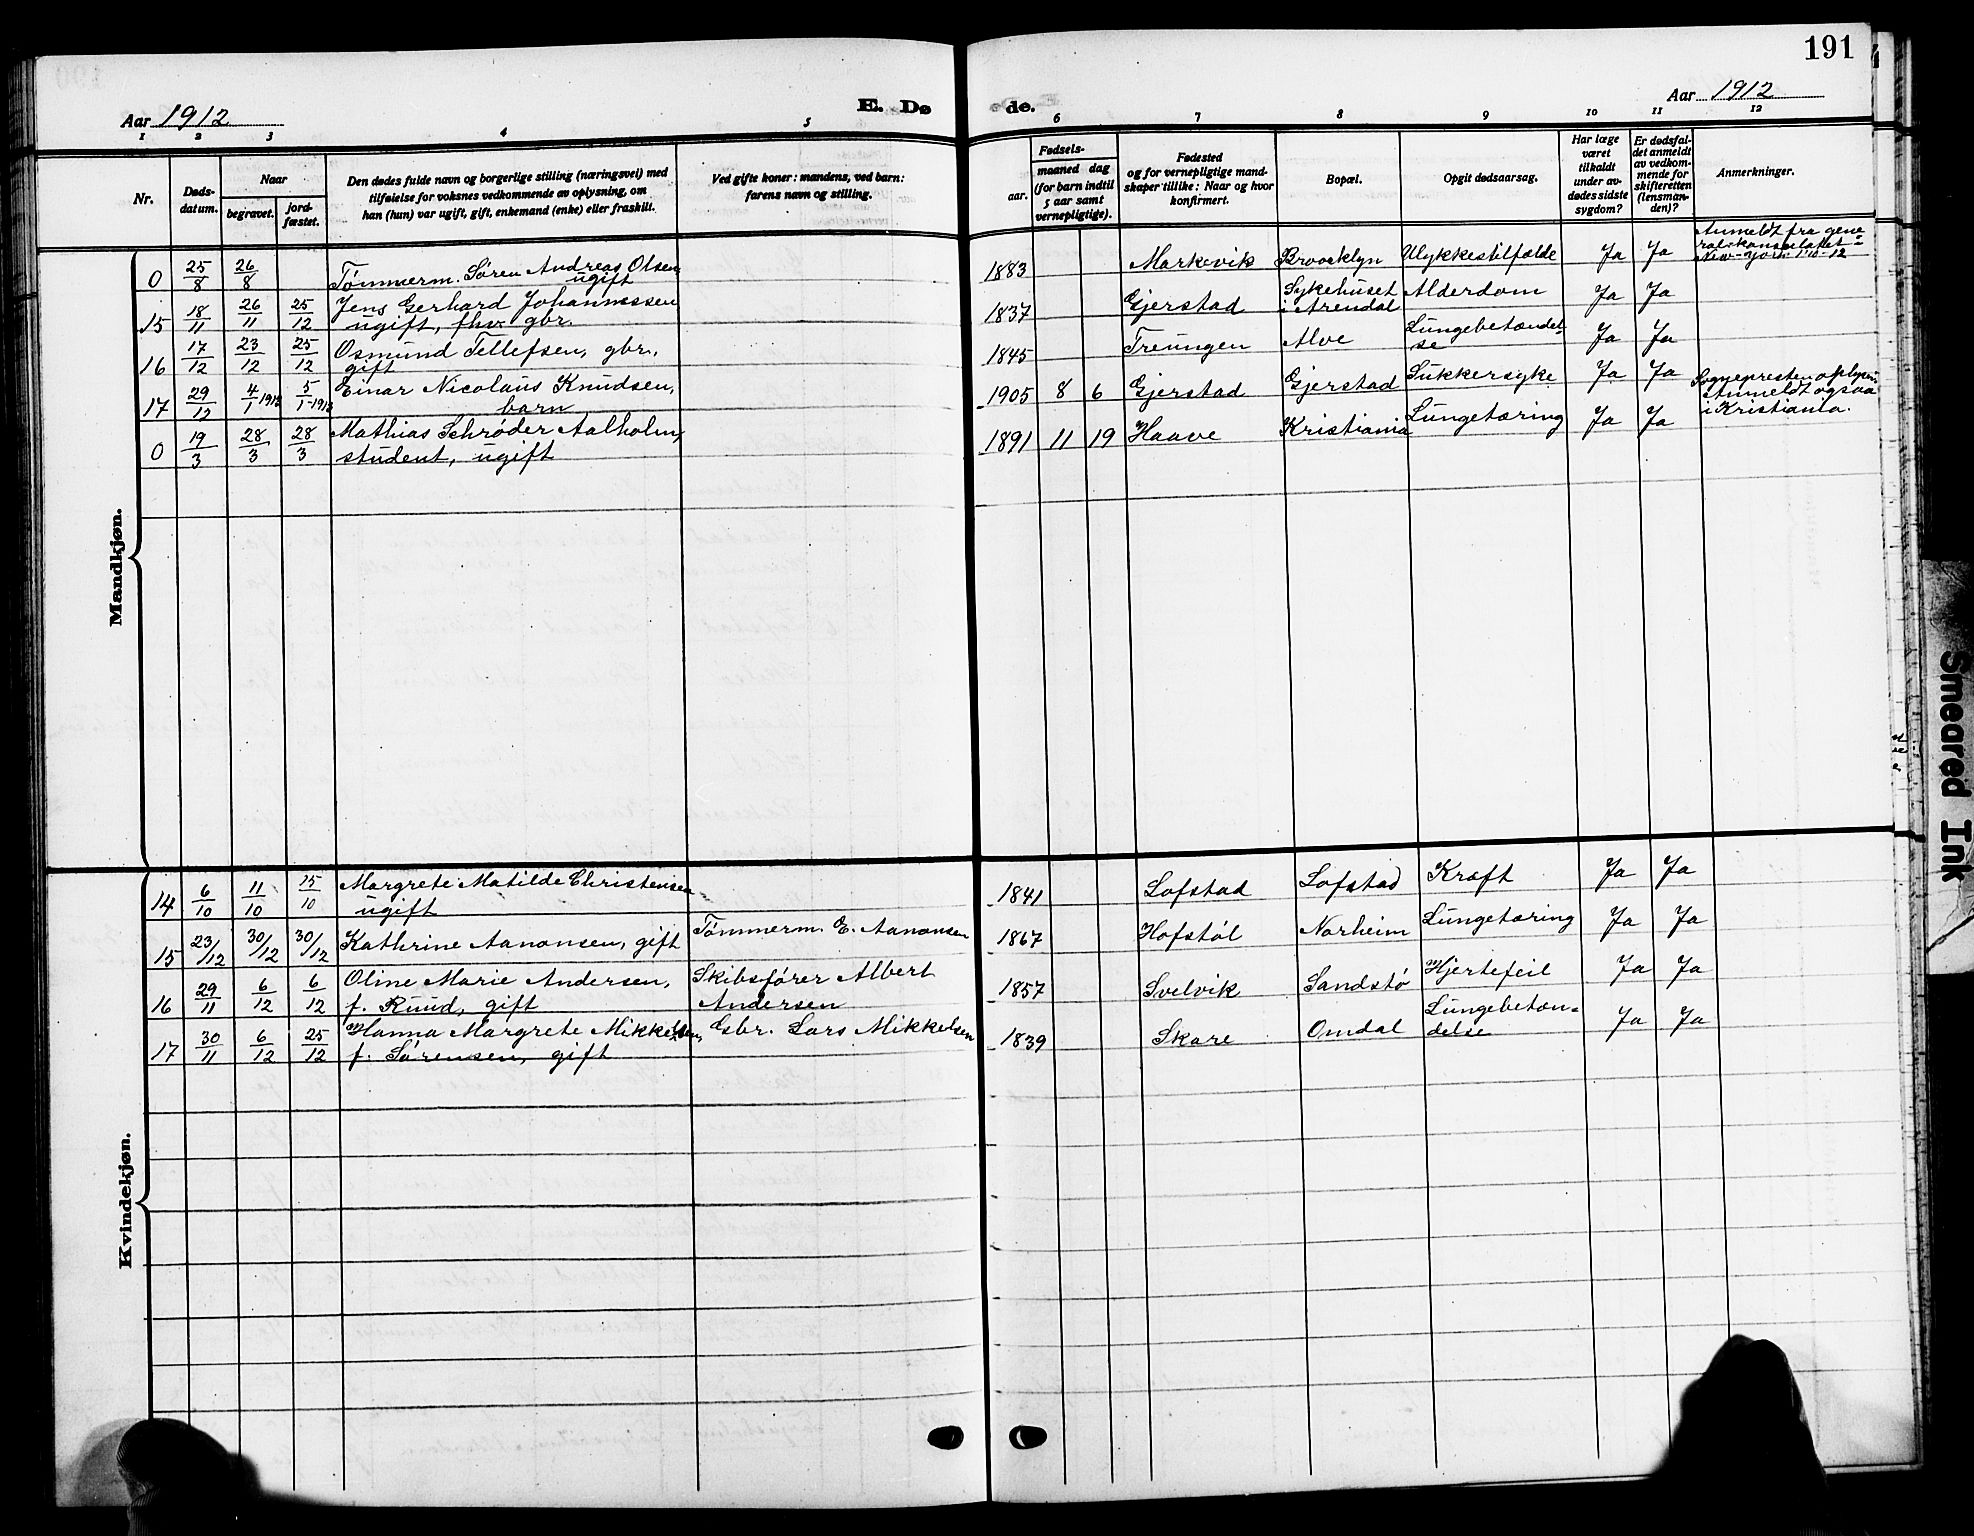 191
Aar 1912
E. Dø
de.
Aar 1912
1 2 3 4 5 6 7 8 9 10 11 12
Nr.
Døds-
datum.
Naar
begravet.
jord-
fæstet.
Den dødes fulde navn og borgerlige stilling (næringsvei) med
tilføielse for voksnes vedkommende av oplysning, om
han (hun) var ugift, gift, enkemand (enke) eller fraskilt.
Ved gifte koner: mandens, ved barn:
farens navn og stilling.
Fødsels-
aar.
maaned dag
(for barn indtil
5 aar samt
vernepligtige).
Fødested
og for vernepligtige mand-
skaper tillike: Naar og hvor
konfirmert.
Bopæl.
Opgit dødsaarsag.
Har læge
været
tilkaldt
under av-
dødes sidste
sygdom?
Er dødsfal-
det anmeldt
av vedkom-
mende for
skifteretten
(lensman-
den)?
Anmerkninger.
Mandkjøn.
0 25/8 26/8 Tømmerm. Søren Andreas Olsen,
ugift
1883 Markevik Broocklyn Ulykkestilfælde Ja Ja
Anmeldt fra gene
ralskonsulatet i
New-York 1-10-12
15 18/11 26/11 25/12 Jens Gerhard Johannessen
ugift, fhv. gbr.
1837 Gjerstad Sykehuset
i Arendal
Alderdom Ja Ja
16 17/12 23/12 25/12 Osmund Tellefsen, gbr.,
gift
1845 Treungen Alve Lungebetændel-
se
Ja Ja
17 29/12 4/1 1913 5/1-1913 Einar Nicolaus Knudsen,
barn
1905 8 6 Gjerstad Gjerstad Sukkersyke Ja Ja
0 19/3 28/3 28/3 Mathias Schrøder Aalholm,
student, ugift
1891 11 19 Haave Kristiania Lungetæring Ja Ja
Sognepresten
Anmeldt ogsaa
i Kristiania.
Kvindekjøn.
14 6/10 11/10 15/10 Margrete Matilde Christensen
ugift
1841 Lofstad Lofstad Kræft Ja Ja
15 23/12 30/12 30/12 Kathrine Aanonsen, gift
Tømmerm. E. Aanonsen
1867 Hofstøl Norheim Lungetæring Ja Ja
16 29/11 6/12 6/12 Oline Marie Andersen,
f. Ruud, gift
Skibsfører Albert
Andersen
1857 Svelvik Sandstø Hjertefeil Ja Ja
17 30/11 6/12 25/12 Hanna Margrete Mikkelsen,
f. Sørensen, gift
Gbr. Lars Mikkelsen
1839 Skare Omdal Lungebetæn-
delse
Ja Ja
Smeared Ink